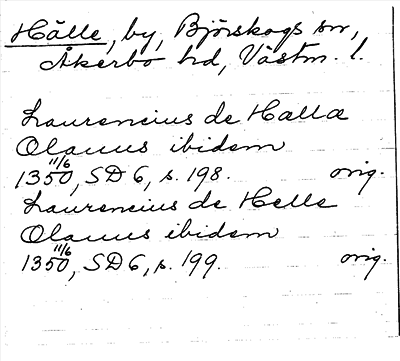 Hälle, by, Björskogs sn,
Åkerbo hd, Västm. l.
Laurencius de Halla
Olauus ibidem
1350 11/6, SD 6, s. 198. orig.
Laurencius de Helle
Olauus ibidem
1350 11/6, SD 6, s. 199. orig.